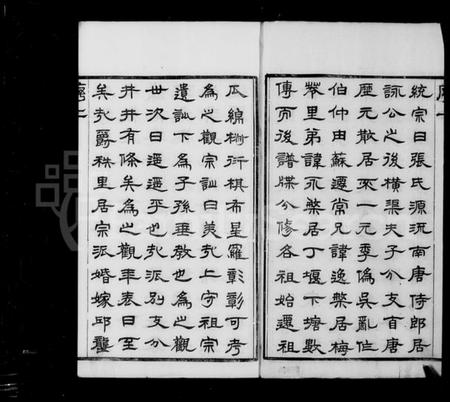 統宗曰張氏源流南唐侍郎居
詠公之後橫渠夫子分支自唐
歷元散居來一元季僞吳亂作
伯仲由蘇遷常兄諱逸槃居梅
里第諱永槃居丁堰下塘數
傳而後譜牒分修各祖始遷祖
瓜綿椒衍棋布星羅彰彰可考
為之觀宗訓曰美哉上守祖宗
遺訓下為子孫垂教也為之觀
世次曰遞遞乎也哉派別支分
井井有條矣為之觀年表曰至
矣哉爵秩里居宗派婚嫁邱壟